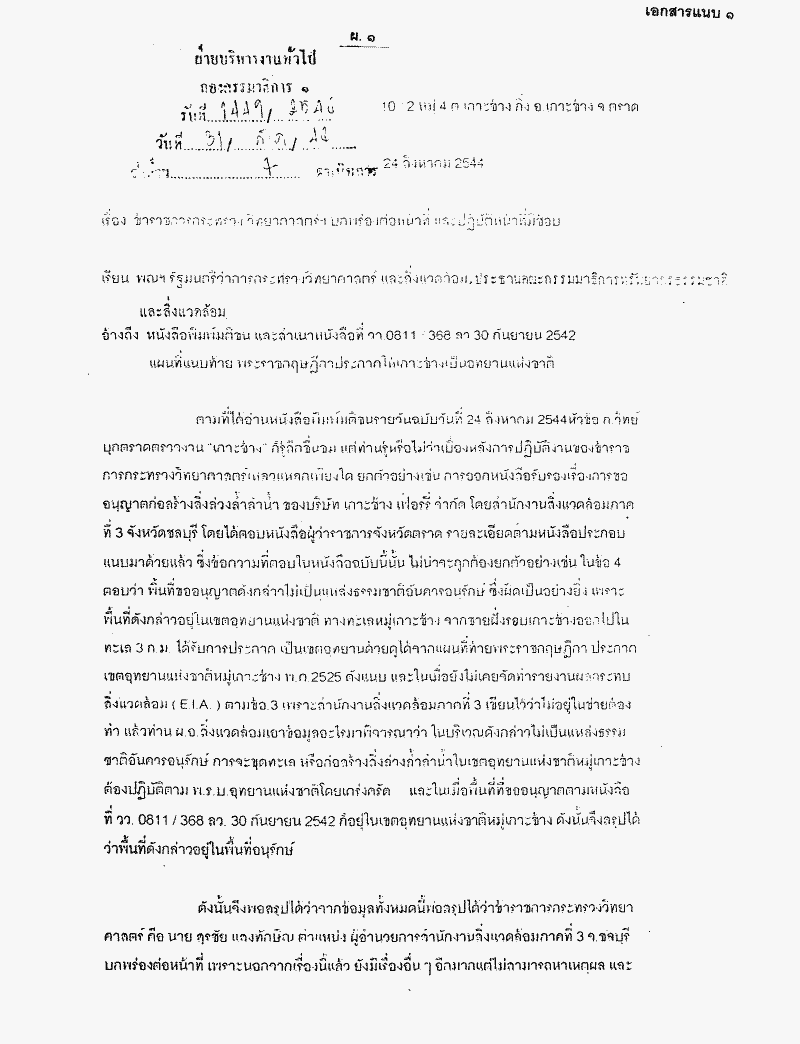 เอกสารแนบ ๑
ผ. ๑
ฝ่ายบริหารงานทั่วไป
กองกรรมาธิการ ๑
รับที่ 1449/2544
วันที่ 31/ / 44
24 สิงหาคม 2544
10 2 หมู่ 4 ต เกาะช้าง กิ่ง อ.เกาะช้าง จ ตราด
เรื่อง ข้าราชการกระทรวงวิทยาศาสตร์ฯ บกพร่องต่อหน้าที่ และปฏิบัติหน้าที่มิชอบ
เรียน พณฯ รัฐมนตรีว่าการกระทรวงวิทยาศาสตร์ และสิ่งแวดล้อม, ประธานคณะกรรมาธิการทรัพยากรธรรมชาติ
และสิ่งแวดล้อม
อ้างถึง หนังสือพิมพ์มติชน และสำเนาหนังสือที่ วว.0811 / 368 ลว 30 กันยายน 2542
แผนที่แนบท้าย พระราชกฤษฎีกาประกาศให้เกาะช้างเป็นอุทยานแห่งชาติ
ตามที่ได้อ่านหนังสือพิมพ์มติชนรายวันฉบับวันที่ 24 สิงหาคม 2544หัวข้อ ก.วิทย์
บุกตราดตรวจงาน "เกาะช้าง" ก็รู้สึกชื่นชม แต่ท่านรู้หรือไม่ว่าเบื้องหลังการปฏิบัติงานของข้าราช
การกระทรวงวิทยาศาสตร์เหลวแหลกเพียงใด ยกตัวอย่างเช่น การออกหนังสือรับรองเรื่องการขอ
อนุญาตก่อสร้างสิ่งล่วงล้ำลำน้ำ ของบริษัท เกาะช้าง เฟอร์รี่ จำกัด โดยสำนักงานสิ่งแวดล้อมภาค
ที่ 3 จังหวัดชลบุรี โดยได้ตอบหนังสือผู้ว่าราชการจังหวัดตราด รายละเอียดตามหนังสือประกอบ
แนบมาด้วยแล้ว ซึ่งข้อความที่ตอบในหนังสือฉบับนี้นั้น ไม่น่าจะถูกต้องยกตัวอย่างเช่น ในข้อ 4
ตอบว่า พื้นที่ขออนุญาตดังกล่าวไม่เป็นแหล่งธรรมชาติอันควรอนุรักษ์ ซึ่งผิดเป็นอย่างยิ่ง เพราะ
พื้นที่ดังกล่าวอยู่ในเขตอุทยานแห่งชาติ ทางทะเลหมู่เกาะช้าง จากชายฝั่งรอบเกาะช้างออกไปใน
ทะเล 3 ก.ม. ได้รับการประกาศ เป็นเขตอุทยานด้วยดูได้จากแผนที่ท้ายพระราชกฤษฎีกา ประกาศ
เขตอุทยานแห่งชาติหมู่เกาะช้าง พ.ศ.2525 ดังแนบ และในเมื่อยังไม่เคยจัดทำรายงานผลกระทบ
สิ่งแวดล้อม ( E.I.A. ) ตามข้อ.3 เพราะสำนักงานสิ่งแวดล้อมภาคที่ 3 เขียนไว้ว่าไม่อยู่ในข่ายต้อง
ทำ แล้วท่าน ผ.อ.สิ่งแวดล้อมเอาข้อมูลอะไรมาพิจารณาว่า ในบริเวณดังกล่าวไม่เป็นแหล่งธรรม
ชาติอันควรอนุรักษ์ การจะขุดทะเล หรือก่อสร้างสิ่งล่วงล้ำลำน้ำในเขตอุทยานแห่งชาติหมู่เกาะช้าง
ต้องปฏิบัติตาม พ.ร.บ.อุทยานแห่งชาติโดยเคร่งครัด และในเมื่อพื้นที่ที่ขออนุญาตตามหนังสือ
ที่ วว. 0811 / 368 ลว. 30 กันยายน 2542 ก็อยู่ในเขตอุทยานแห่งชาติหมู่เกาะช้าง ดังนั้นจึงสรุปได้
ว่าพื้นที่ดังกล่าวอยู่ในพื้นที่อนุรักษ์
ดังนั้นจึงพอสรุปได้ว่าจากข้อมูลทั้งหมดนี้พอสรุปได้ว่าข้าราชการกระทรวงวิทยา
ศาสตร์ คือ นาย สุรชัย แสงทักษิณ ตำแหน่ง ผู้อำนวยการสำนักงานสิ่งแวดล้อมภาคที่ 3 จ.ชลบุรี
บกพร่องต่อหน้าที่ เพราะนอกจากเรื่องนี้แล้ว ยังมีเรื่องอื่น ๆ อีกมากแต่ไม่สามารถหาเหตุผล และ